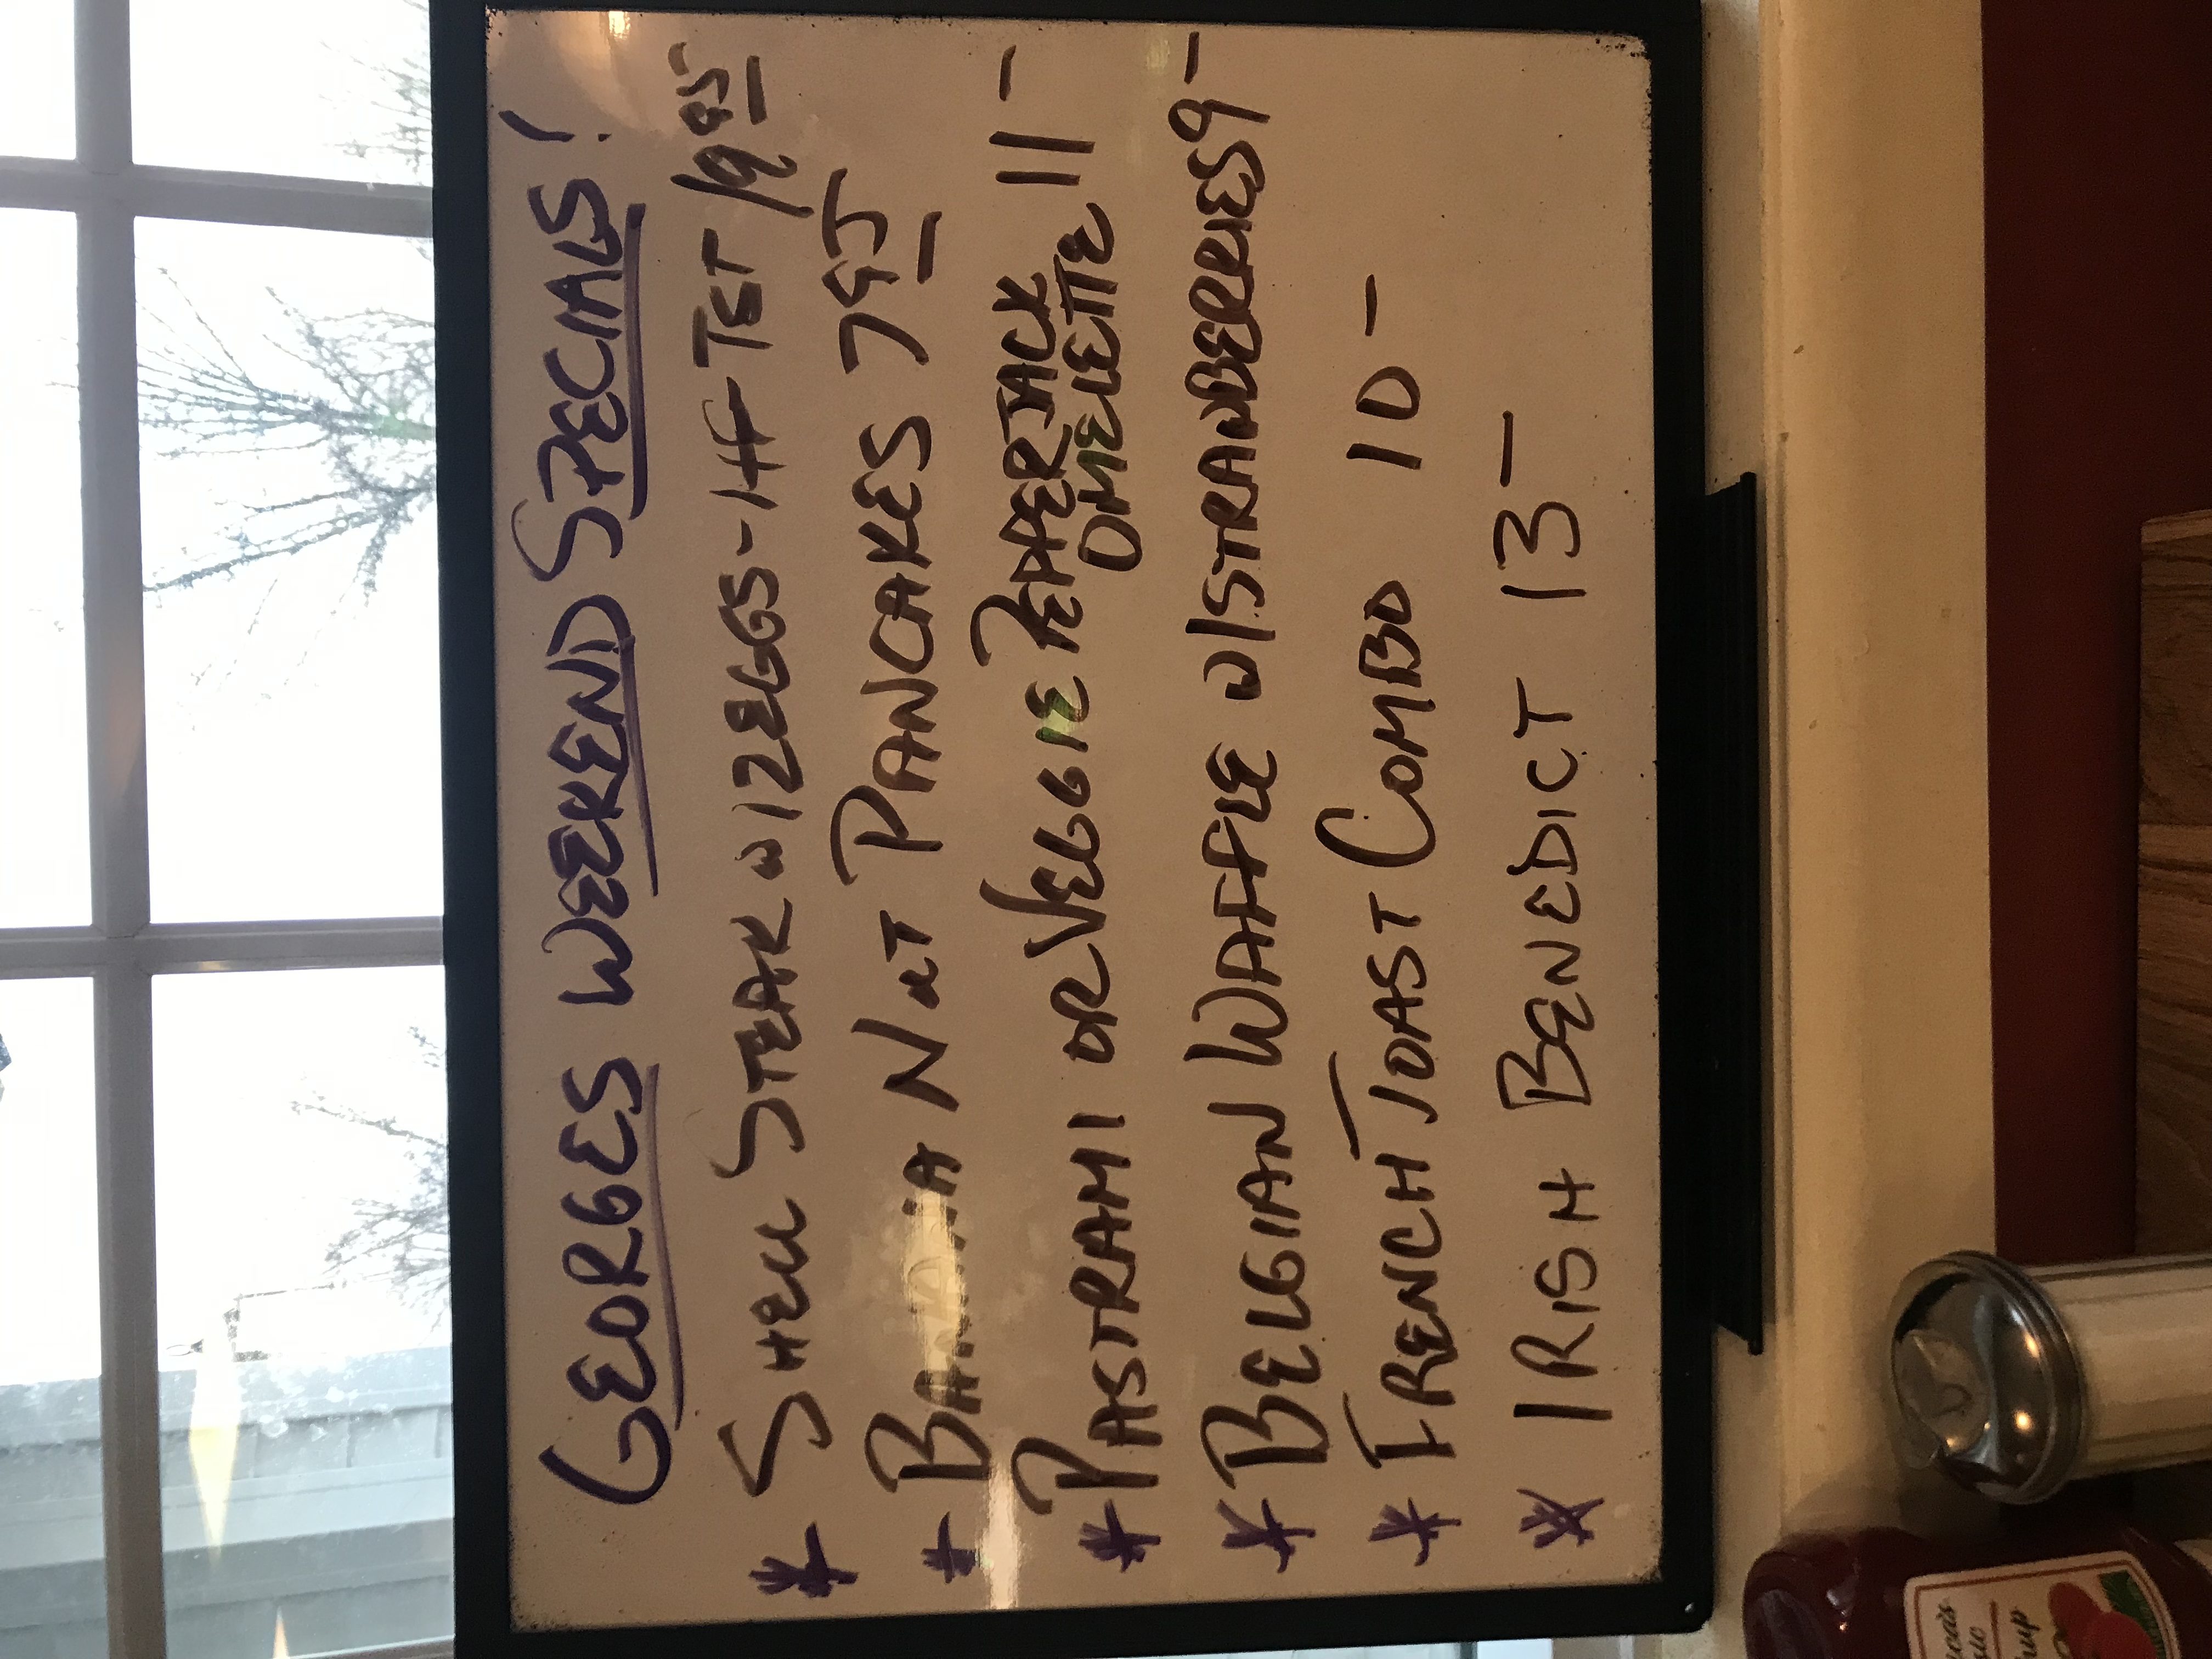 GEORGES WEEKEND SPECIALS!
* SHELL STEAK W/2EGGS-HF-TST 19 95
* BANANA NUT PANCAKES 7 95
* PASTRAMI OR VEGGIE PEPPERJACK
OMELETTE 11-
* BELGIAN WAFFLE W/STRAWBERRIES 9-
* FRENCH TOAST COMBO 10-
* IRISH BENEDICT 13-